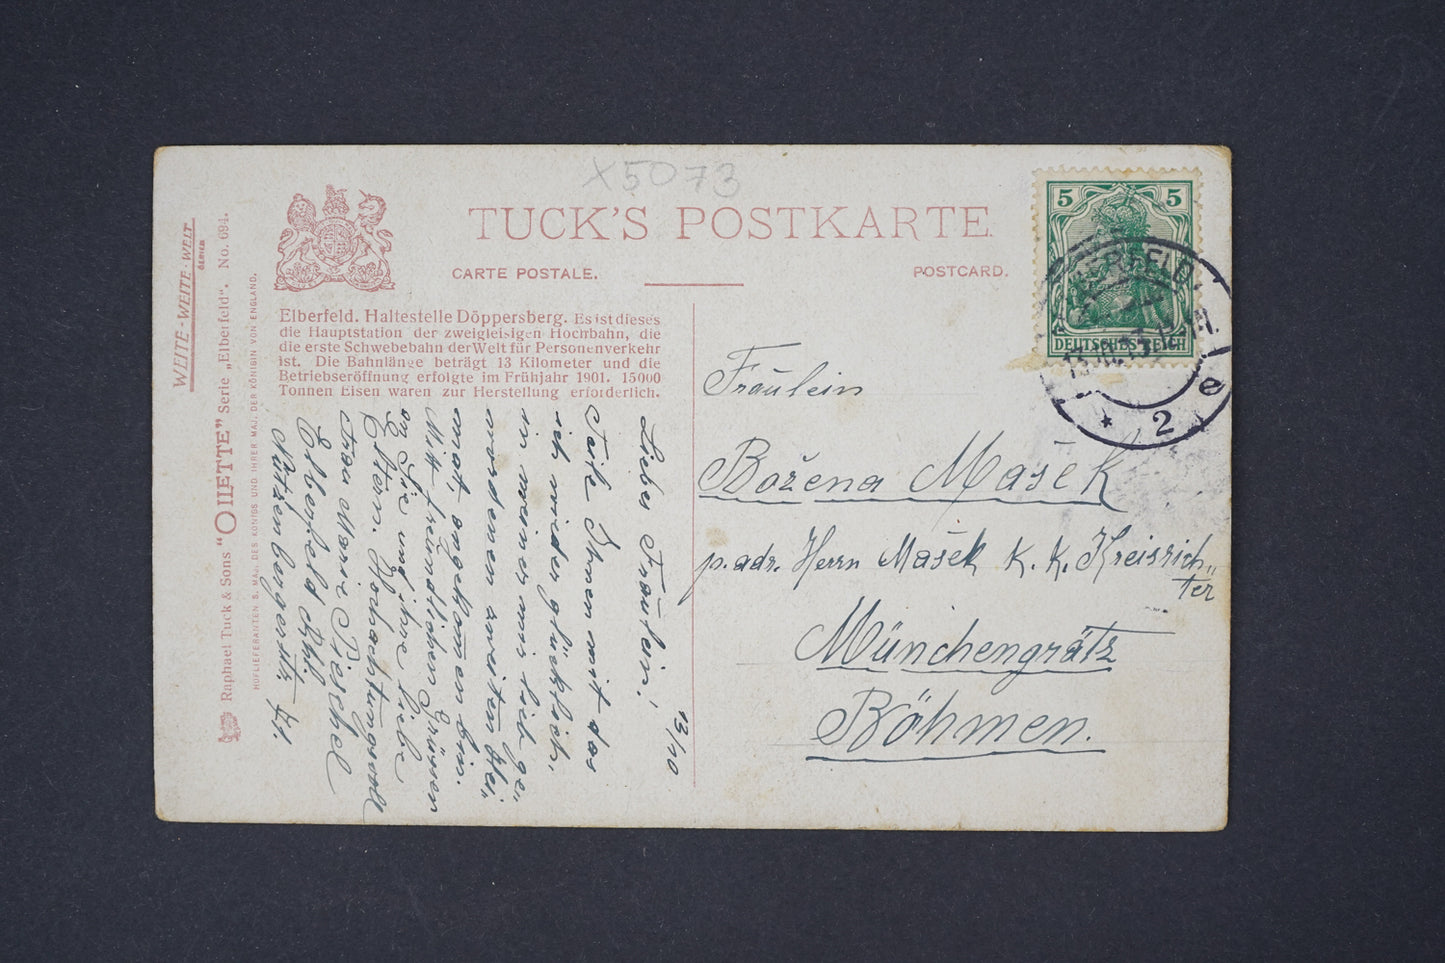 X5073
TUCK'S POSTKARTE
CARTE POSTALE.
POSTCARD.
WEITE-WEITE-WELT
SERIEN
Raphael Tuck & Sons “OILETTE” Serie „Elberfeld“. No. 694.
HOFLIEFERANTEN S. MAJ. DES KÖNIGS UND IHRER MAJ. DER KÖNIGIN VON ENGLAND.
Elberfeld. Haltestelle Döppersberg. Es ist dieses
die Hauptstation der zweigleisigen Hochbahn, die
die erste Schwebebahn der Welt für Personenverkehr
ist. Die Bahnlänge beträgt 13 Kilometer und die
Betriebseröffnung erfolgte im Frühjahr 1901. 15000
Tonnen Eisen waren zur Herstellung erforderlich.
13/10
Liebes Fräulein!
Teile Ihnen mit das
ich wieder glücklich
in meiner mir lieb ge„
wordenen zweiten Hei„
mat angekommen bin.
Mitt freundlichen Grüssen
an Sie und ihre liebe
Eltern. Hochachtungsvoll
Frau Marie Pieschel
Elberfeld Rhl.
Nützenbergerstr. 41.
5 5
DEUTSCHES REICH
ELBERFELD.
13.10.13.
* 2 e
Fräulein
Božena Mašek
p. adr. Herrn Mašek K. K. Kreisrich„
ter
Münchengrätz
Böhmen.